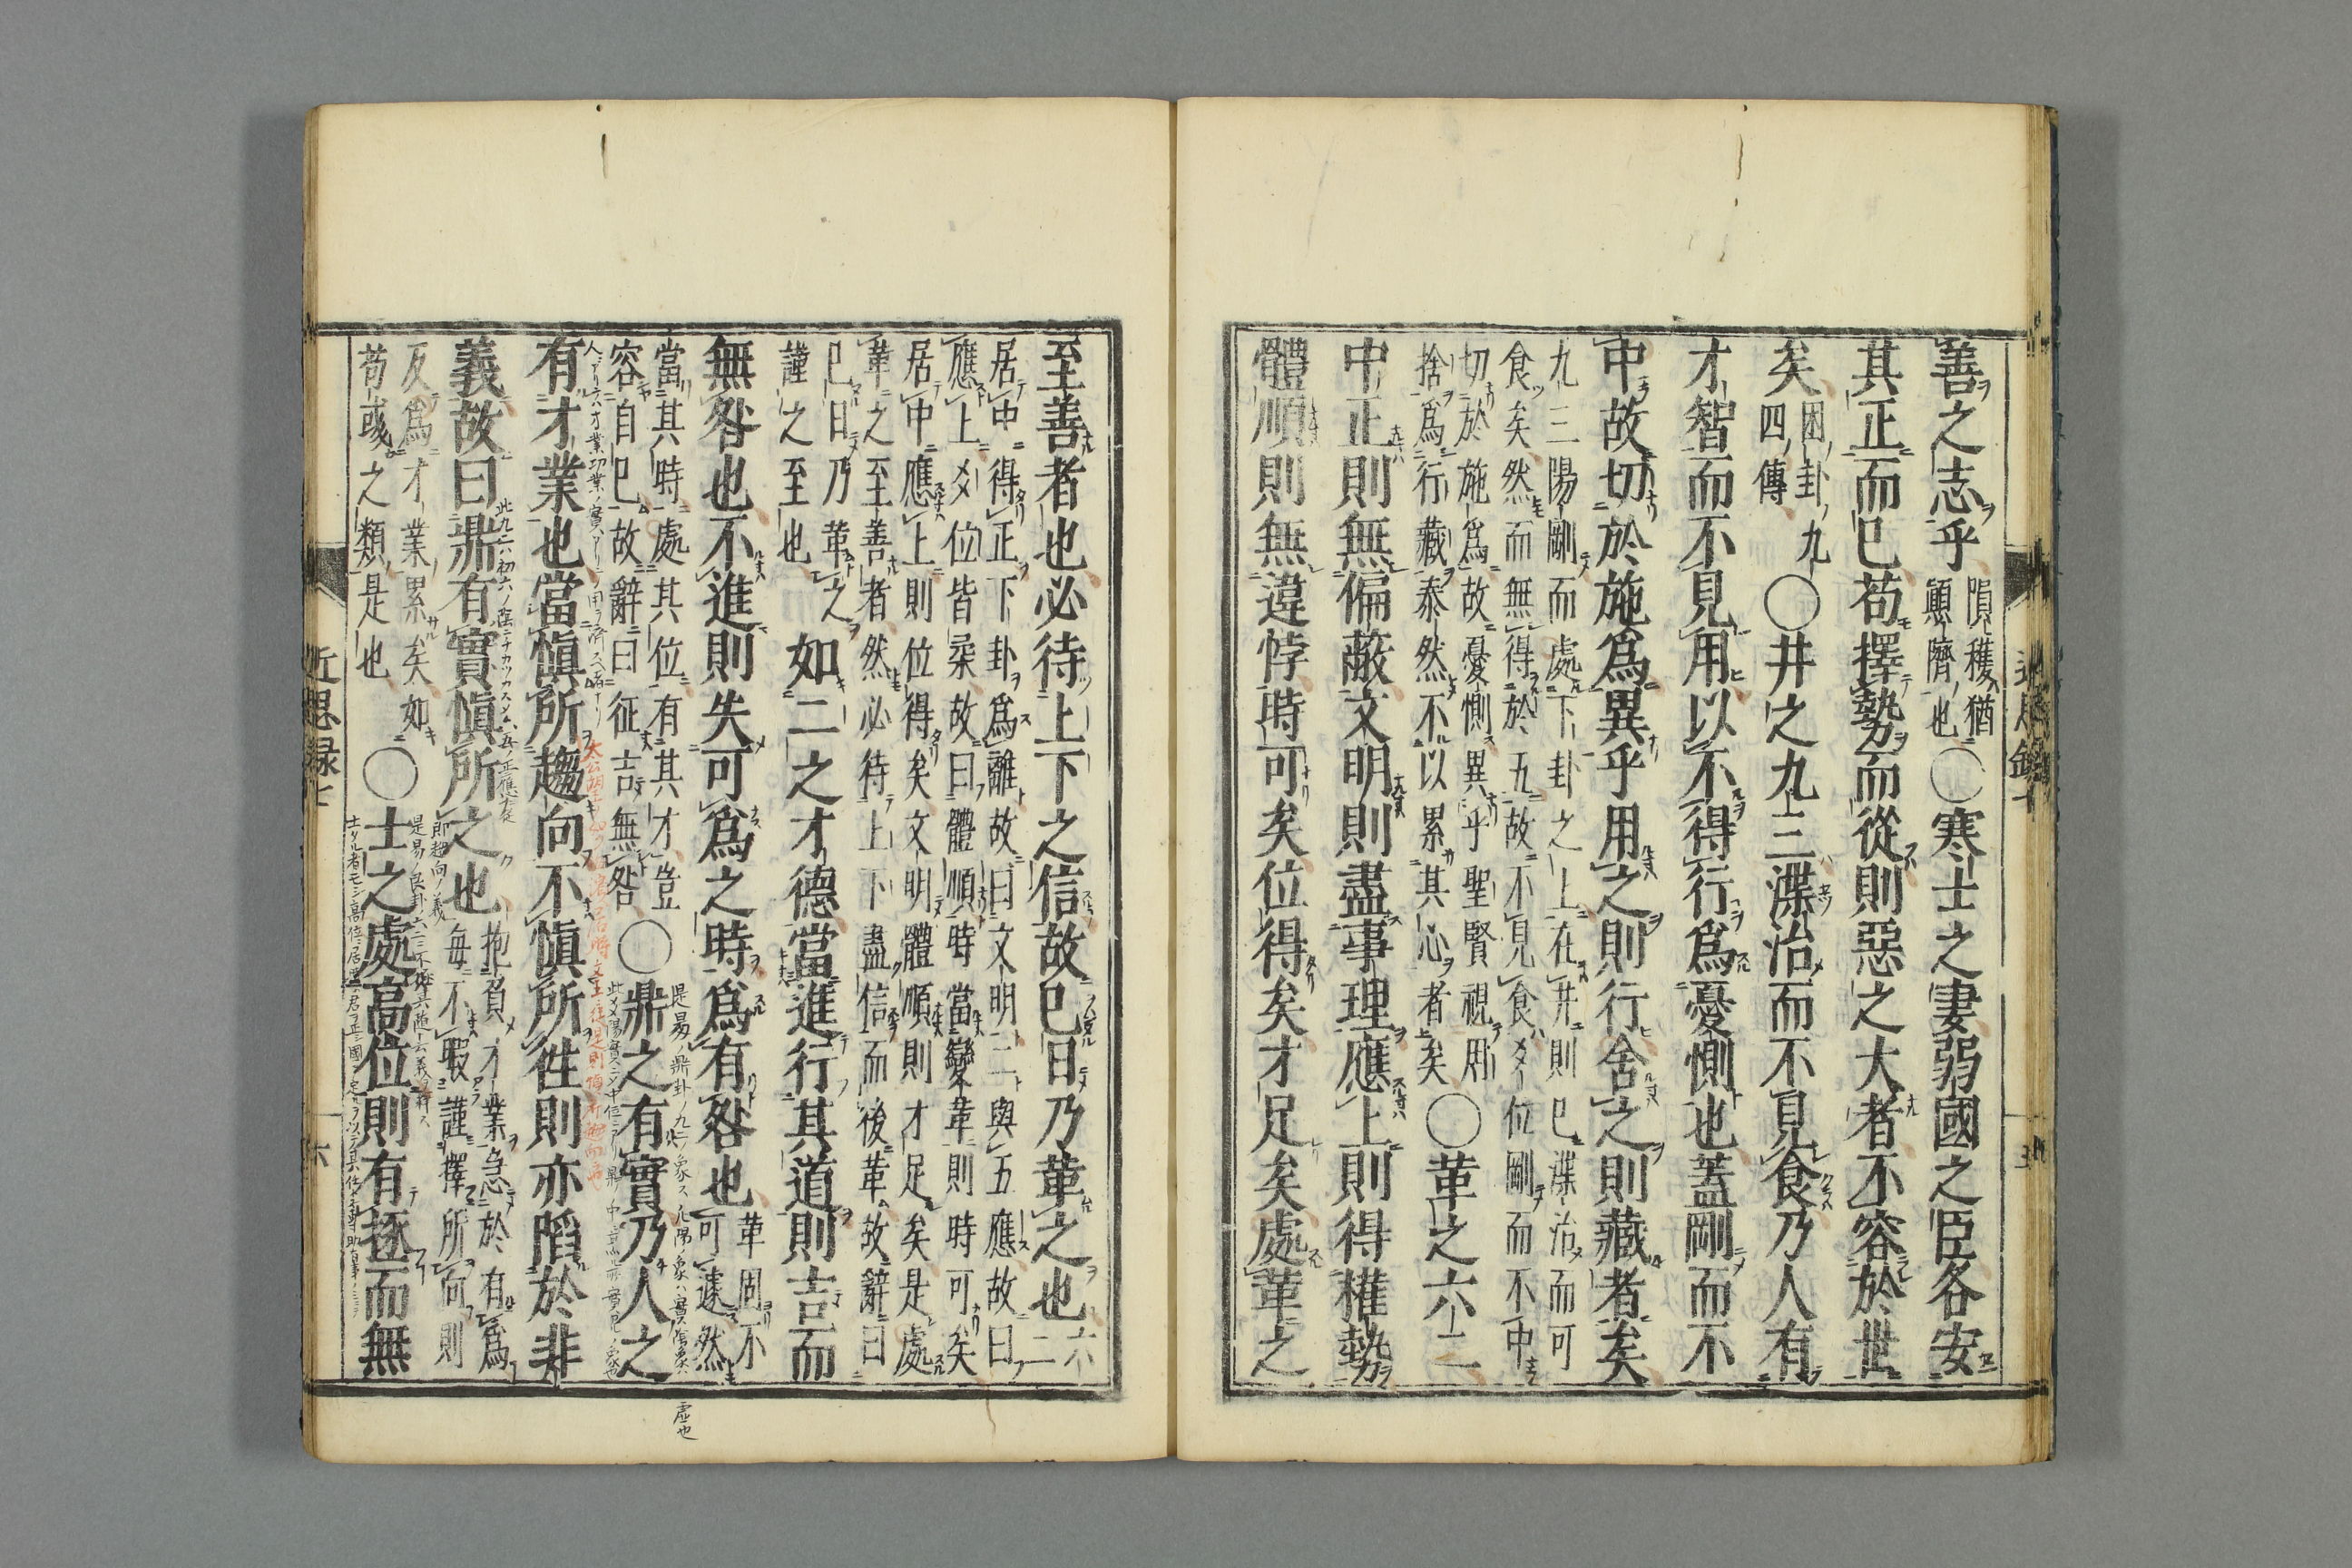 善之志乎
隕穫猶
顚隮也
〇寒士之妻弱國之臣各安
其正而已苟擇勢而從則惡之大者不容於世
矣
困卦九
四傳
〇井之九三渫治而不見食乃人有
才智而不見用以不得行爲憂惻也蓋剛而不
中故切於施爲異乎用之則行舍之則藏者矣
九三陽剛而處下卦之上在井則已渫治而可
食矣然而無得於五故不見食爻位剛而不中
切於施爲故憂惻異乎聖賢視用
捨爲行藏泰然不以累其心者矣
〇革之六二
中正則無偏蔽文明則盡事理應上則得權勢
體順則無違悖時可矣位得矣才足矣處革之
至善者也必待上下之信故已日乃革之也
六
二
居中得正下卦爲離故曰文明二與五應故曰
應上爻位皆柔故曰體順時當變革則時可矣
居中應上則位得矣文明體順則才足矣是處
革之至善者然必待上下盡信而後革故辭曰
已日乃革之
謹之至也
如二之才德當進行其道則吉而
無咎也不進則失可爲之時爲有咎也
革固不
可遽然
當其時處其位有其才豈
容自已故辭曰征吉無咎
〇鼎之有實乃人之
有才業也當愼所趨向不愼所往則亦陷於非
義故曰鼎有實愼所之也
抱負才業急於有爲
每不暇謹擇所向則
反爲才業累矣如
荀彧之類是也
〇士之處高位則有拯而無
近思録七
六
虚也